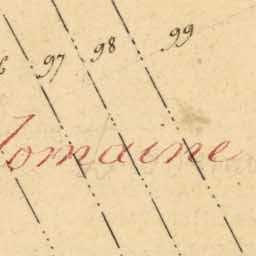 97 98 99
Romaine